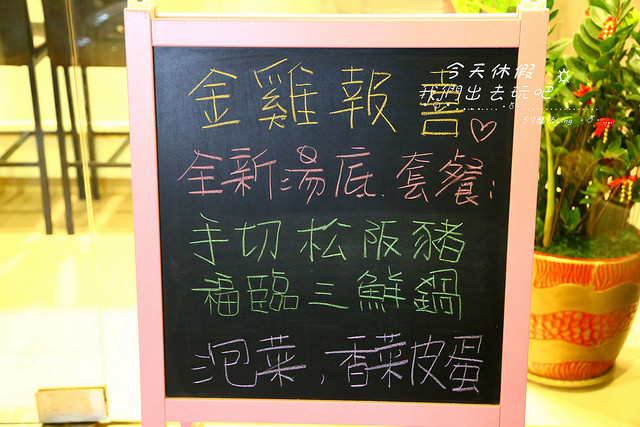 金雞報喜♡
全新湯底.套餐:
手切松阪豬
福臨三鮮鍋
泡菜,香菜皮蛋
今天休假
我們出去玩吧